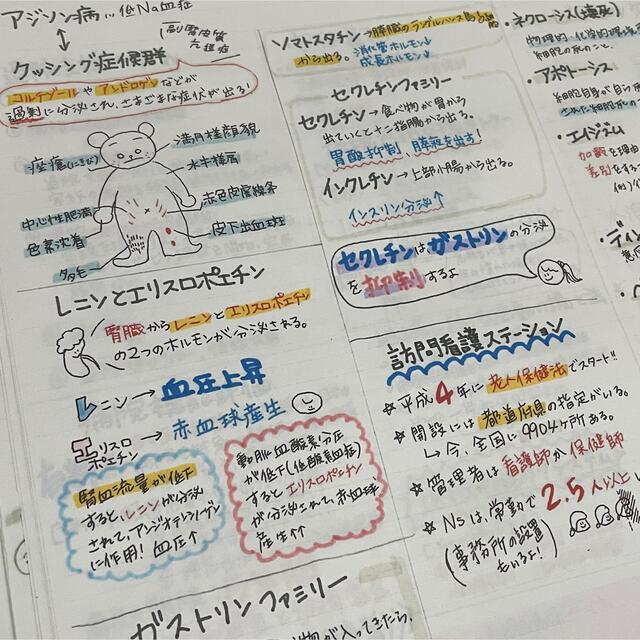 アジソン病…低Na血症
クッシング症候群
コルチゾールやアンドロゲンなどが
過剰に分泌され、さまざまな症状が出る!
痤瘡(にきび)
満月様顔貌
水牛様肩
中心性肥満
赤色皮膚線条
色素沈着
皮下出血斑
多毛
レニンとエリスロポエチン
腎臓からレニンとエリスロポエチン
の2つのホルモンが分泌される。
レニン→血圧上昇
エリスロポエチン→赤血球産生
腎血流量が低下
すると、レニンが分泌
されて、アンジオテンシノーゲン
に作用!血圧↑
動脈血酸素分圧
が低下(低酸素血症)
するとエリスロポエチン
が分泌されて、赤血球
産生↑
ガストリンファミリー
ソマトスタチン→膵臓のランゲルハンス島
から出る。
消化管ホルモン↓
成長ホルモン↓
セクレチンファミリー
セクレチン→食べ物が胃から
出ていくと十二指腸から出る。
胃酸抑制、膵液を出す!
インクレチン→上部小腸から出る。
インスリン分泌↑
セクレチンはガストリンの分泌
を抑制するよ
訪問看護ステーション
☆平成4年に老人保健法でスタート!!
☆開設には都道府県の指定がいる。
↳今、全国に9904ヶ所ある。
☆管理者は看護師か保健師
☆Nsは、常勤で2.5人以上
(事務所の設置
もいるよ!)
・ネクローシス(壊死)
・アポトーシス
・エイジズム
加齢を理由
差別をする